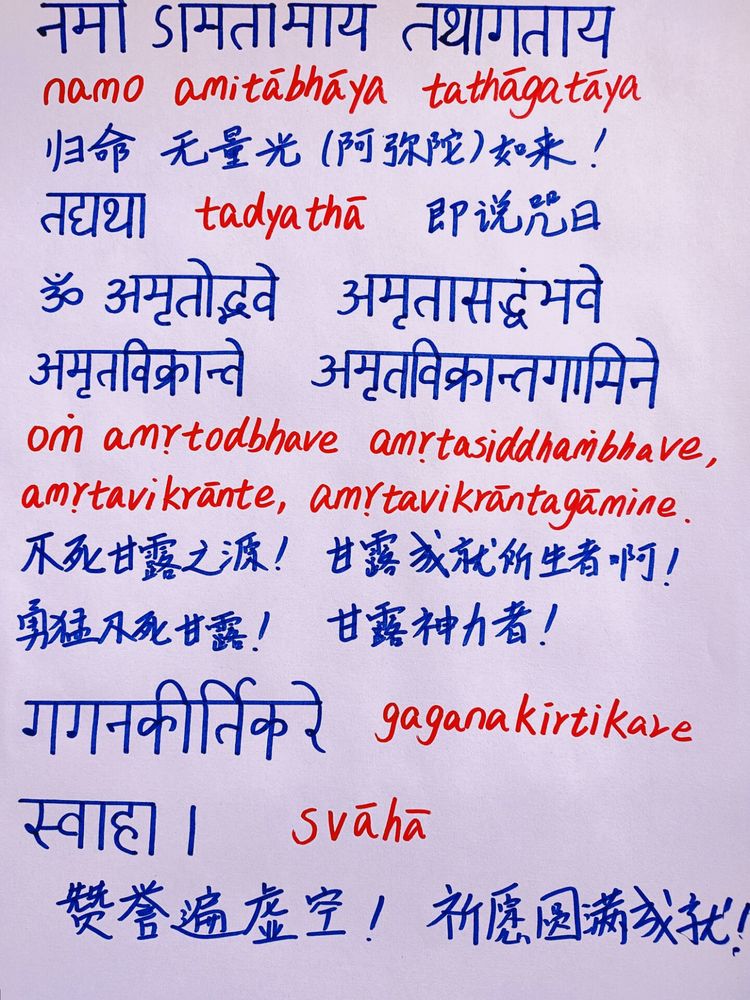 नमो ऽामतामाय तथागताय
namo amitābhāya tathāgatāya
归命 无量光(阿弥陀)如来！
तद्यथा tadyathā 即说咒曰
ॐ अमृतोद्भवे अमृतासद्धंभवे
अमृतविक्रान्ते अमृतविक्रान्तगामिने
oṁ amṛtodbhave amṛtasiddhaṁbhave,
amṛtavikrānte, amṛtavikrāntagāmine.
不死甘露之源！ 甘露成就所生者啊！
勇猛不死甘露！ 甘露神力者！
गगनकीर्तिकरे gaganakīrtikare
स्वाहा । svāhā
赞誉遍虚空！ 祈愿圆满成就！